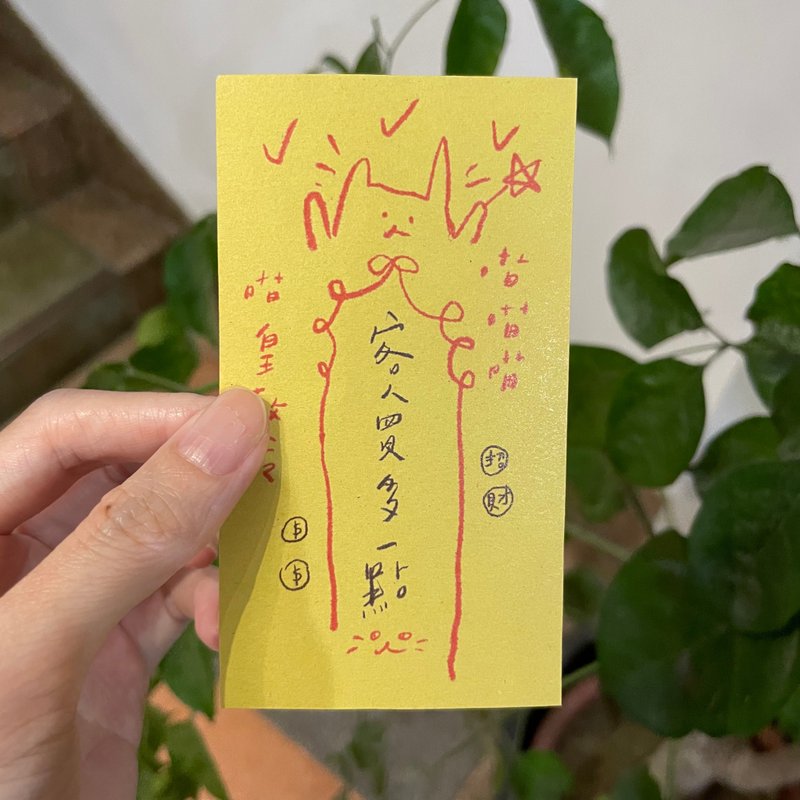 喵喵喵
招財
客人買多一點
喵皇敕令
$$